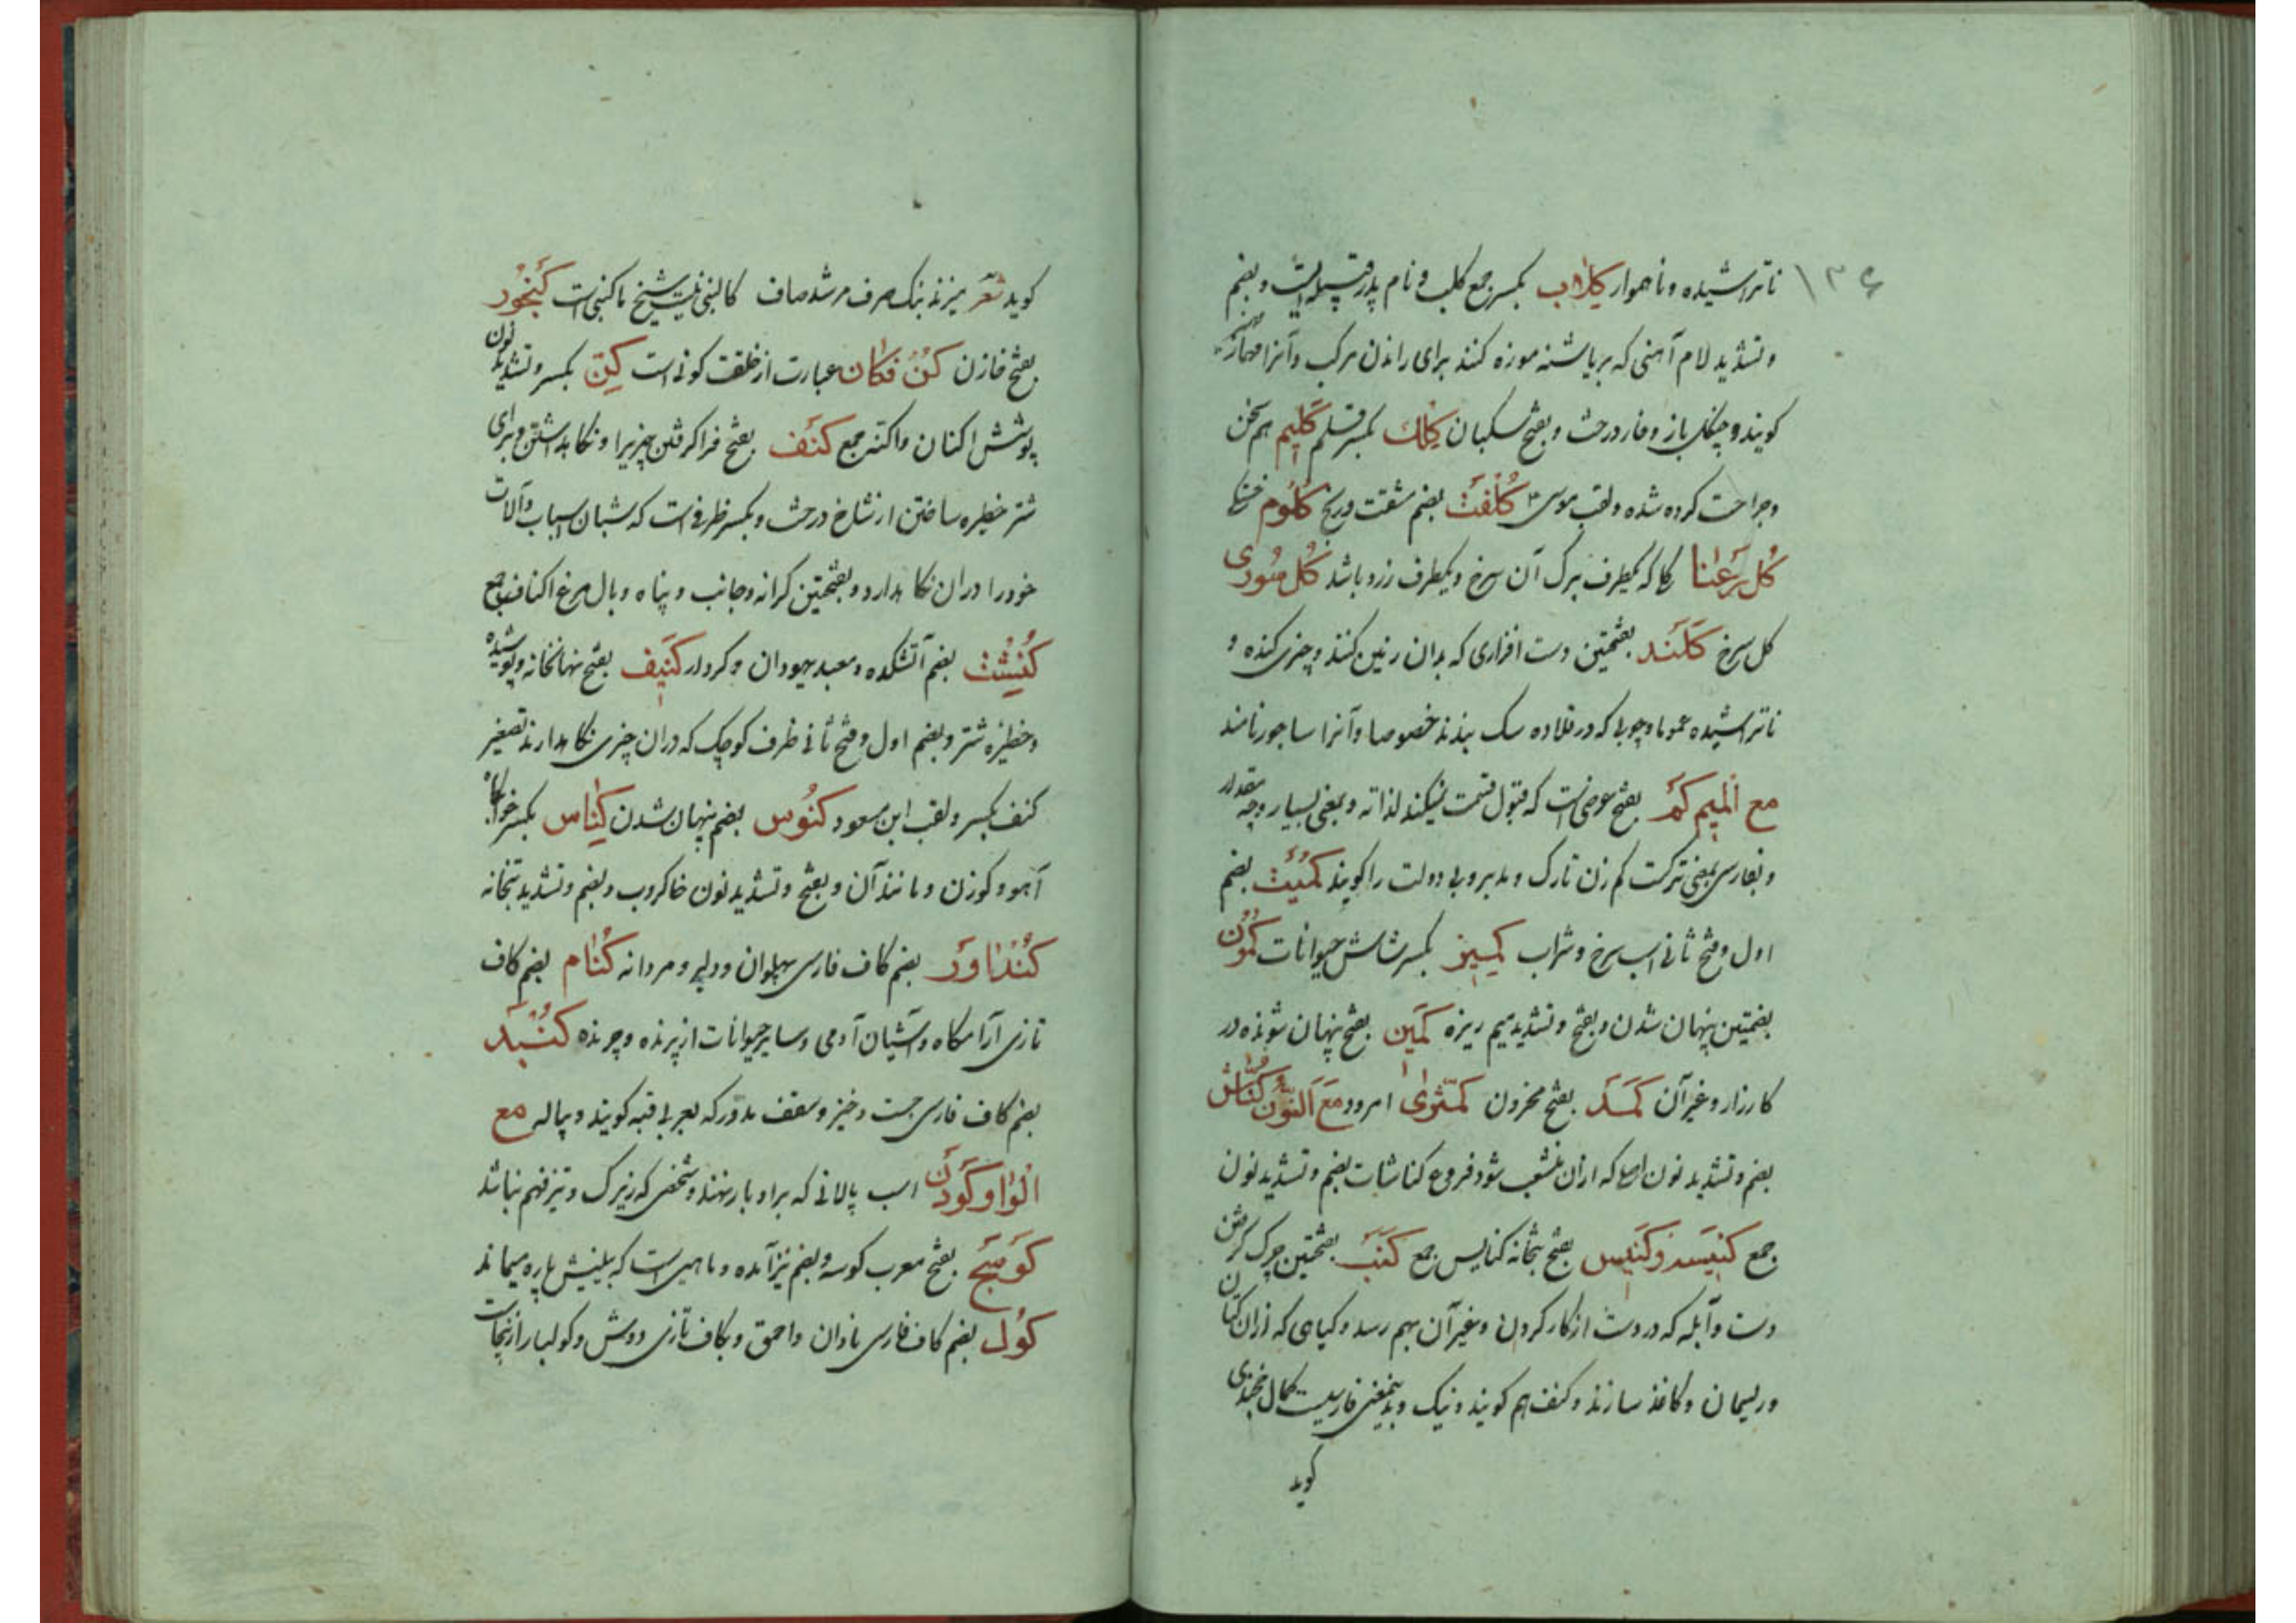 ۱۳۶
ناتراشیده و ناهموار کِلاب بکسر جمع کلب و نام پدر قبیله ایست و بضم
و تشدید لام آهنی که بر پاشنه موزه کنند برای راندن مرکب و آنرا مهماز
کویند و چنکل باز و خار درخت و بفتح سکبان کِلك بکسر قلم کَلیم هم سخن
و جراحت کرده شده و لقب موسی کُلفَت بضم مشقت و رنج کلوم
کُل رَعنا کلی که یکطرف برک آن سرخ و یکطرف زرد باشد کُل سُوری
کل سرخ کَلَند بفتحتین دست افزاری که بدان زمین کنند و چیزی کنده و
ناتراشیده عموما و چوبی که در قلاده سک بندند خصوصا و آنرا ساجور نامند
مع المیم کَم بفتح عرضی است که قبول قسمت میکند لذاته و بمعنی بسیار و چه مقدار
و بفارسی بمعنی ترکت کم زن تارک و مدبر و بی دولت را کویند کُمَیت بضم
اول و فتح ثانی اسب سرخ و شراب کمیز بکسر شاش حیوانات کُمُون
بضمتین پنهان شدن و بفتح و تشدید میم زیره کَمین بفتح پنهان شونده در
کارزار و غیر آن کمد بفتح محزون کمّثری امرود مَعَ النّون کُنّاش
بضم و تشدید نون اصلی که ازان منشعب شود فروع کناشات بضم و تشدید نون
جمع کنیسه و کنیس بفتح بتخانه کنایس جمع کَنَب بفتحتین چرک کرفتن
دست و آبله که در دست از کار کردن و غیر آن بهم رسد و کیاهی که ازان کتان
و ریسمان و کاغذ سازند و کنف هم کویند و بنک و بدینمعنی فارسیست کمال خجندی
کوید
کوید شعر میزند بنک صرف مرشد صاف کالبنی نیت شیخ ما کنبی است کنجور
بفتح خازن کُن فَکان عبارت از خلقت کونی است کِنّ بکسر و تشدید نون
پوشش اکنان و اکنه جمع کنَف بفتح فراکرفتن چیزیرا و نکاهداشتن و برای
شتر خطیره ساختن از شاخ درخت و بکسر ظرفی است که شبان اسباب و آلات
خود را دران نکاهدارد و بفتحتین کرانه و جانب و پناه و بال مرغ اکناف جمع
کُنِشت بضم آتشکده و معبد یهودان و کردار کنیف بفتح نهانخانه و پوشیده
و خطیره شتر و بضم اول و فتح ثانی ظرف کوچک که دران چیزی نکاهدارند تصغیر
کنف بکسر و لقب ابن مسعود کنُوس بضم پنهان شدن کِناس بکسر خوابکاه
آهو و کوزن و مانند آن و بفتح و تشدید نون خاکروب و بضم و تشدید بتخانه
کُنداور بضم کاف فارسی پهلوان و دلیر و مردانه کُنام بضم کاف
تازی آرامکاه و آشیان آدمی و سایر حیوانات از پرنده و چرنده کُنبد
بضم کاف فارسی جست و خیز و سقف مدوّر که بعربی قبه کویند و پیاله مع
الواو کَودَن اسب پالانی که براو بار نهند و شخصی که زیرک و تیزفهم نباشد
کَوسَج بفتح معرب کوسه و بضم نیز آمده و ماهیی است که بینیش باره میماند
کول بضم کاف فارسی نادان و احمق و بکاف تازی دوش و کولبار ازینجاست